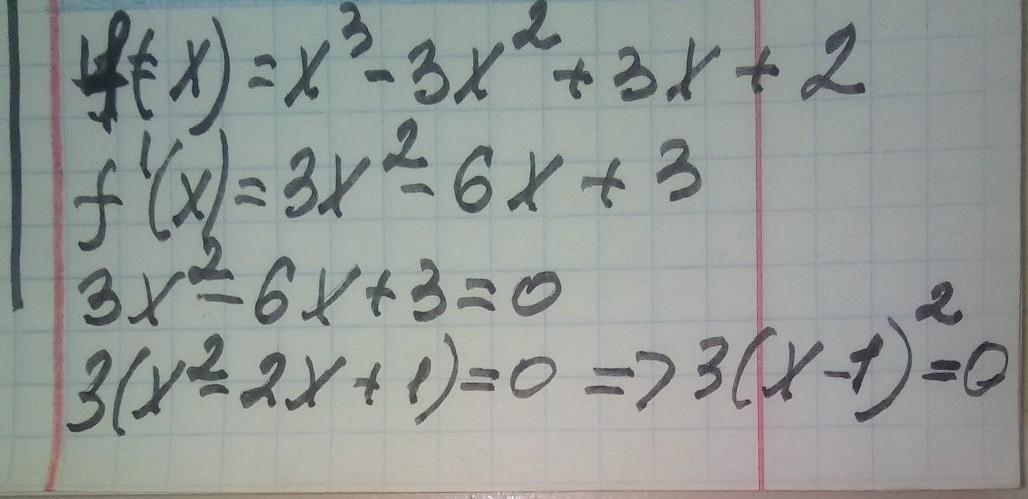 f(x)=x³-3x²+3x+2
f'(x)=3x²-6x+3
3x²-6x+3=0
3(x²-2x+1)=0 => 3(x-1)²=0